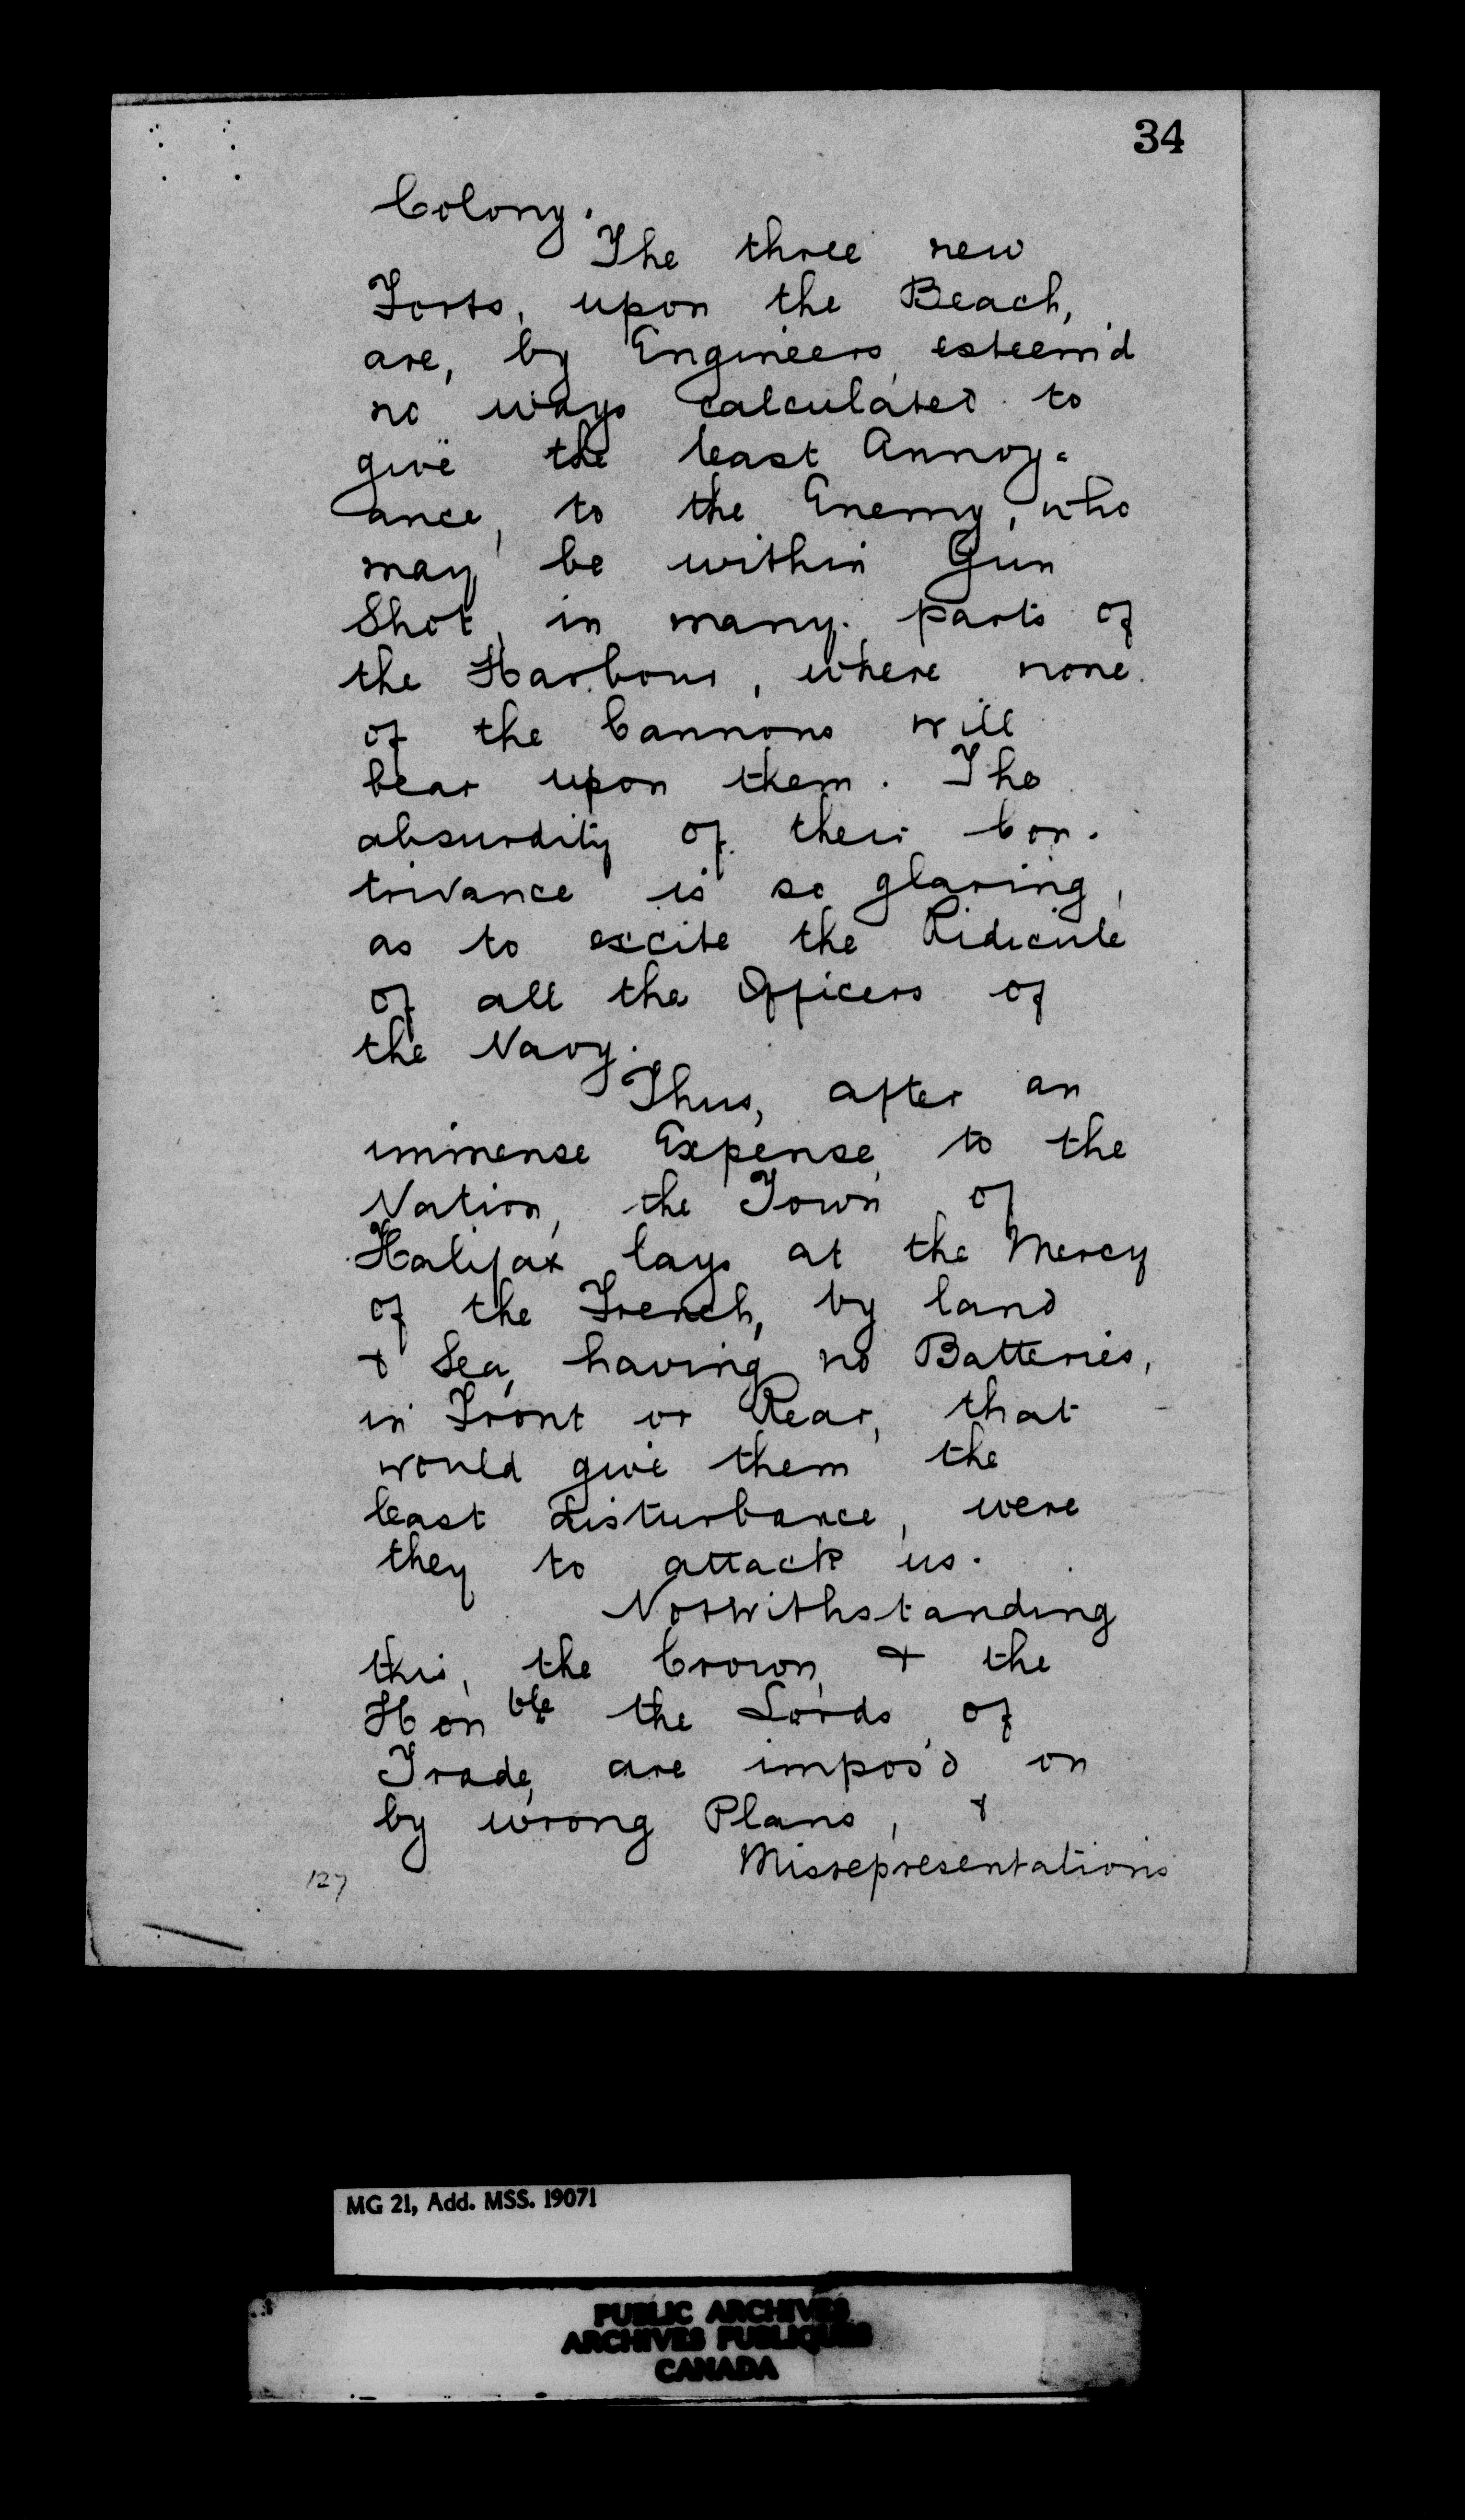 34
Colony.
The three new
Forts, upon the Beach,
are, by Engineers, esteem'd
no ways calculated to
give the least Annoy-
ance, to the Enemy, who
may be within Gun
Shot, in many parts of
the Harbour, where none
of the Cannons will
bear upon them. The
absurdity of their Con-
trivance is so glaring,
as to excite the Ridicule
of all the Officers of
the Navy.
Thus, after an
immense Expense, to the
Nation, the Town of
Halifax lays at the Mercy
of the French, by land
& Sea, having no Batteries,
in Front or Rear, that
would give them the
least disturbance, were
they to attack us.
Notwithstanding
this, the Crown, & the
Honble the Lords of
Trade, are impos'd on
by wrong Plans, &
Misrepresentations
127
MG 21, Add. MSS. 19071
PUBLIC ARCHIVES
ARCHIVES PUBLIQUES
CANADA